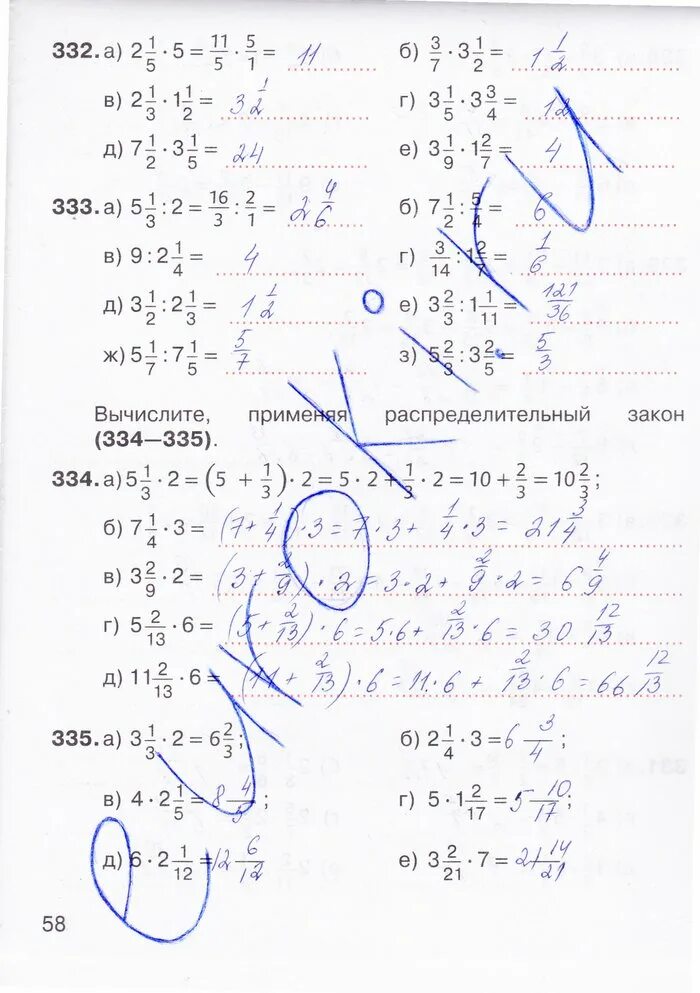 332. а) 2 1/5 · 5 = 11/5 · 5/1 = 11 б) 3/7 · 3 1/2 = 1 1/2
в) 2 1/3 · 1 1/2 = 3 1/2 г) 3 1/5 · 3 3/4 = 12
д) 7 1/2 · 3 1/5 = 24 е) 3 1/9 · 1 2/7 = 4
333. а) 5 1/3 : 2 = 16/3 : 2/1 = 2 4/6 б) 7 1/2 : 5/4 = 6
в) 9 : 2 1/4 = 4 г) 3/14 : 1 2/7 = 1/6
д) 3 1/2 : 2 1/3 = 1 1/2 е) 3 2/3 : 1 1/11 = 121/36
ж) 5 1/7 : 7 1/5 = 5/7 з) 5 2/3 : 3 2/5 = 5/3
Вычислите, применяя распределительный закон
(334—335).
334. а) 5 1/3 · 2 = (5 + 1/3) · 2 = 5 · 2 + 1/3 · 2 = 10 + 2/3 = 10 2/3;
б) 7 1/4 · 3 = (7 + 1/4) · 3 = 7 · 3 + 1/4 · 3 = 21 3/4
в) 3 2/9 · 2 = (3 + 2/9) · 2 = 3 · 2 + 2/9 · 2 = 6 4/9
г) 5 2/13 · 6 = (5 + 2/13) · 6 = 5 · 6 + 2/13 · 6 = 30 12/13
д) 11 2/13 · 6 = (11 + 2/13) · 6 = 11 · 6 + 2/13 · 6 = 66 12/13
335. а) 3 1/3 · 2 = 6 2/3; б) 2 1/4 · 3 = 6 3/4;
в) 4 · 2 1/5 = 8 4/5; г) 5 · 1 2/17 = 5 10/17;
д) 6 · 2 1/12 = 12 6/12 е) 3 2/21 · 7 = 21 14/21
58